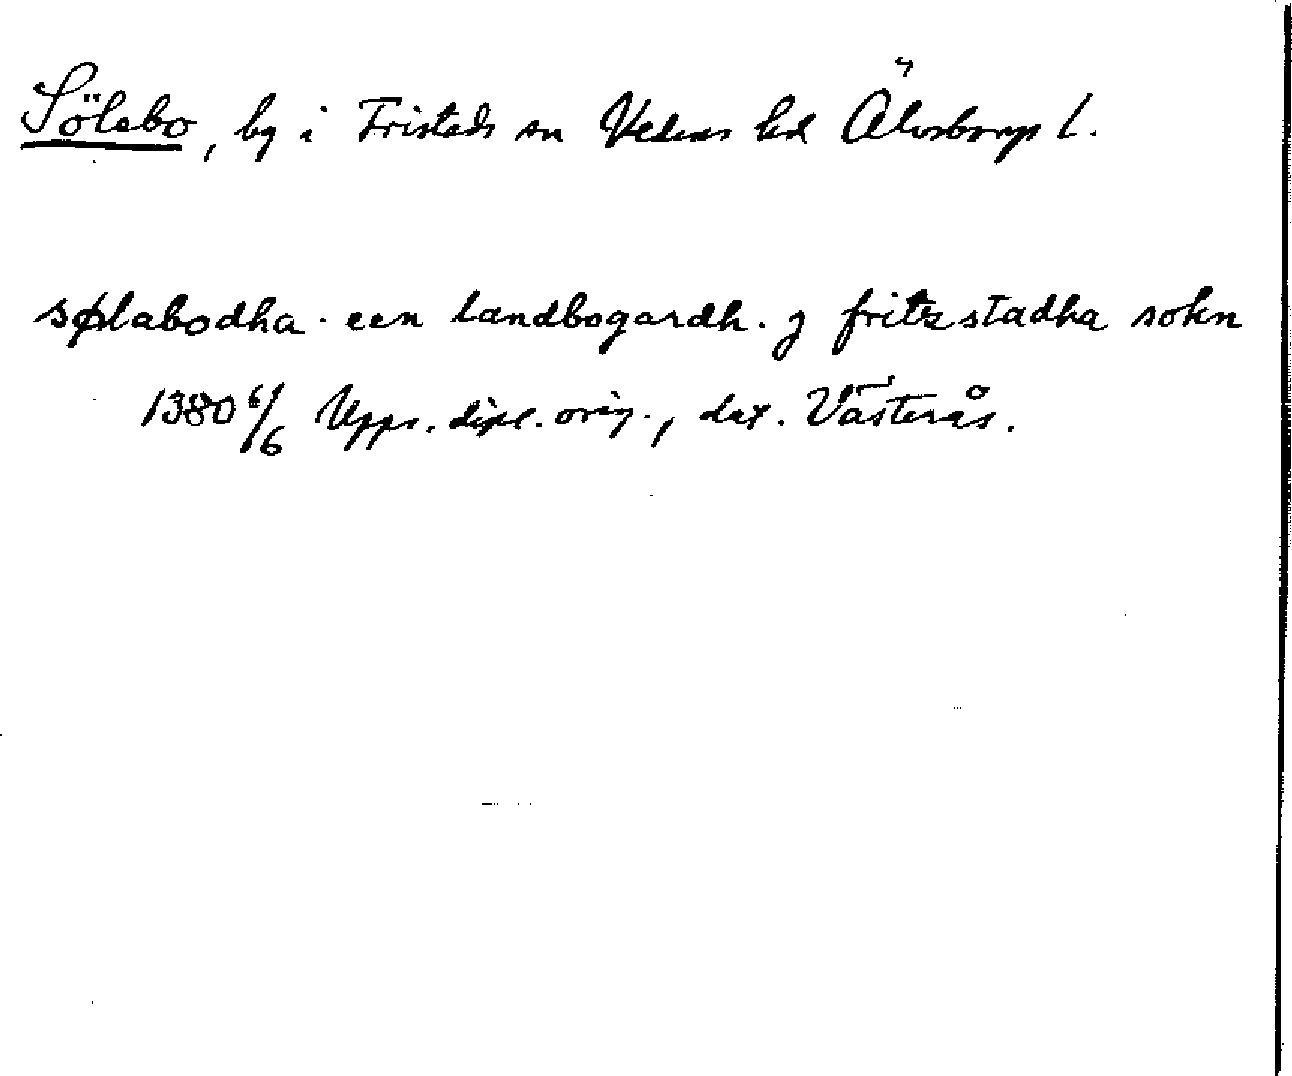 Sölebo, by i Fristads sn Vedens hd Älvsborgs l.
sølabodha · een landbogardh. j fritzstadha sokn
1380 6/6 Upps. dipl. orig., dat. Västerås.